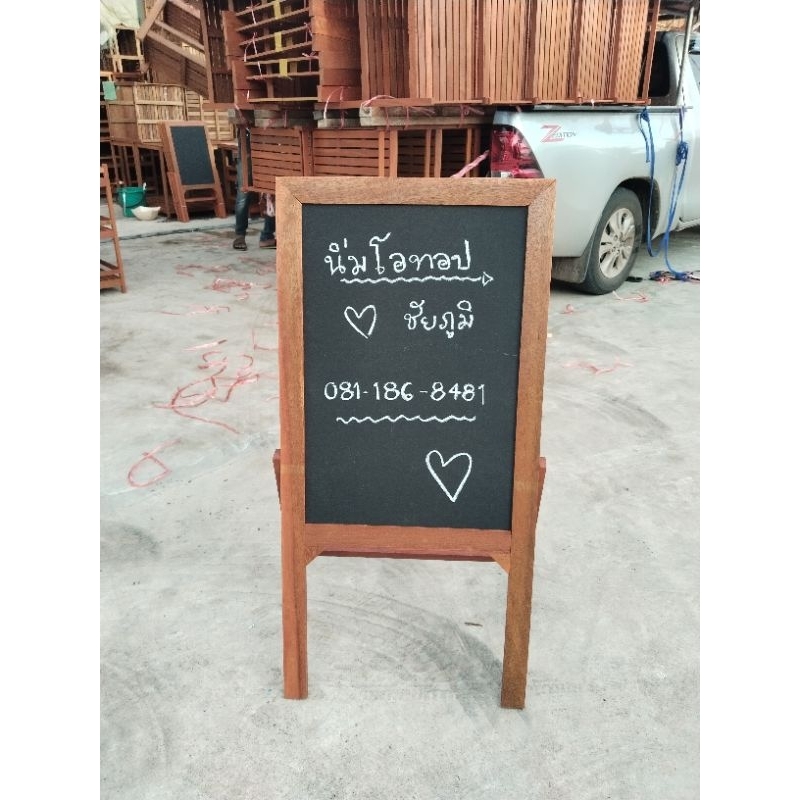 นิ่มโอทอป
ชัยภูมิ
081-186-8481
Z EDITION